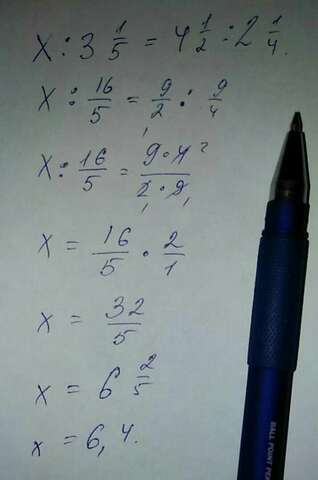 x : 3 1/5 = 4 1/2 : 2 1/4.
x : 16/5 = 9/2 : 9/4
x : 16/5 = 9 · 4 2 / 2 · 9 1 1 1
x = 16/5 · 2/1
x = 32/5
x = 6 2/5
x = 6,4.
BALL POINT PEN